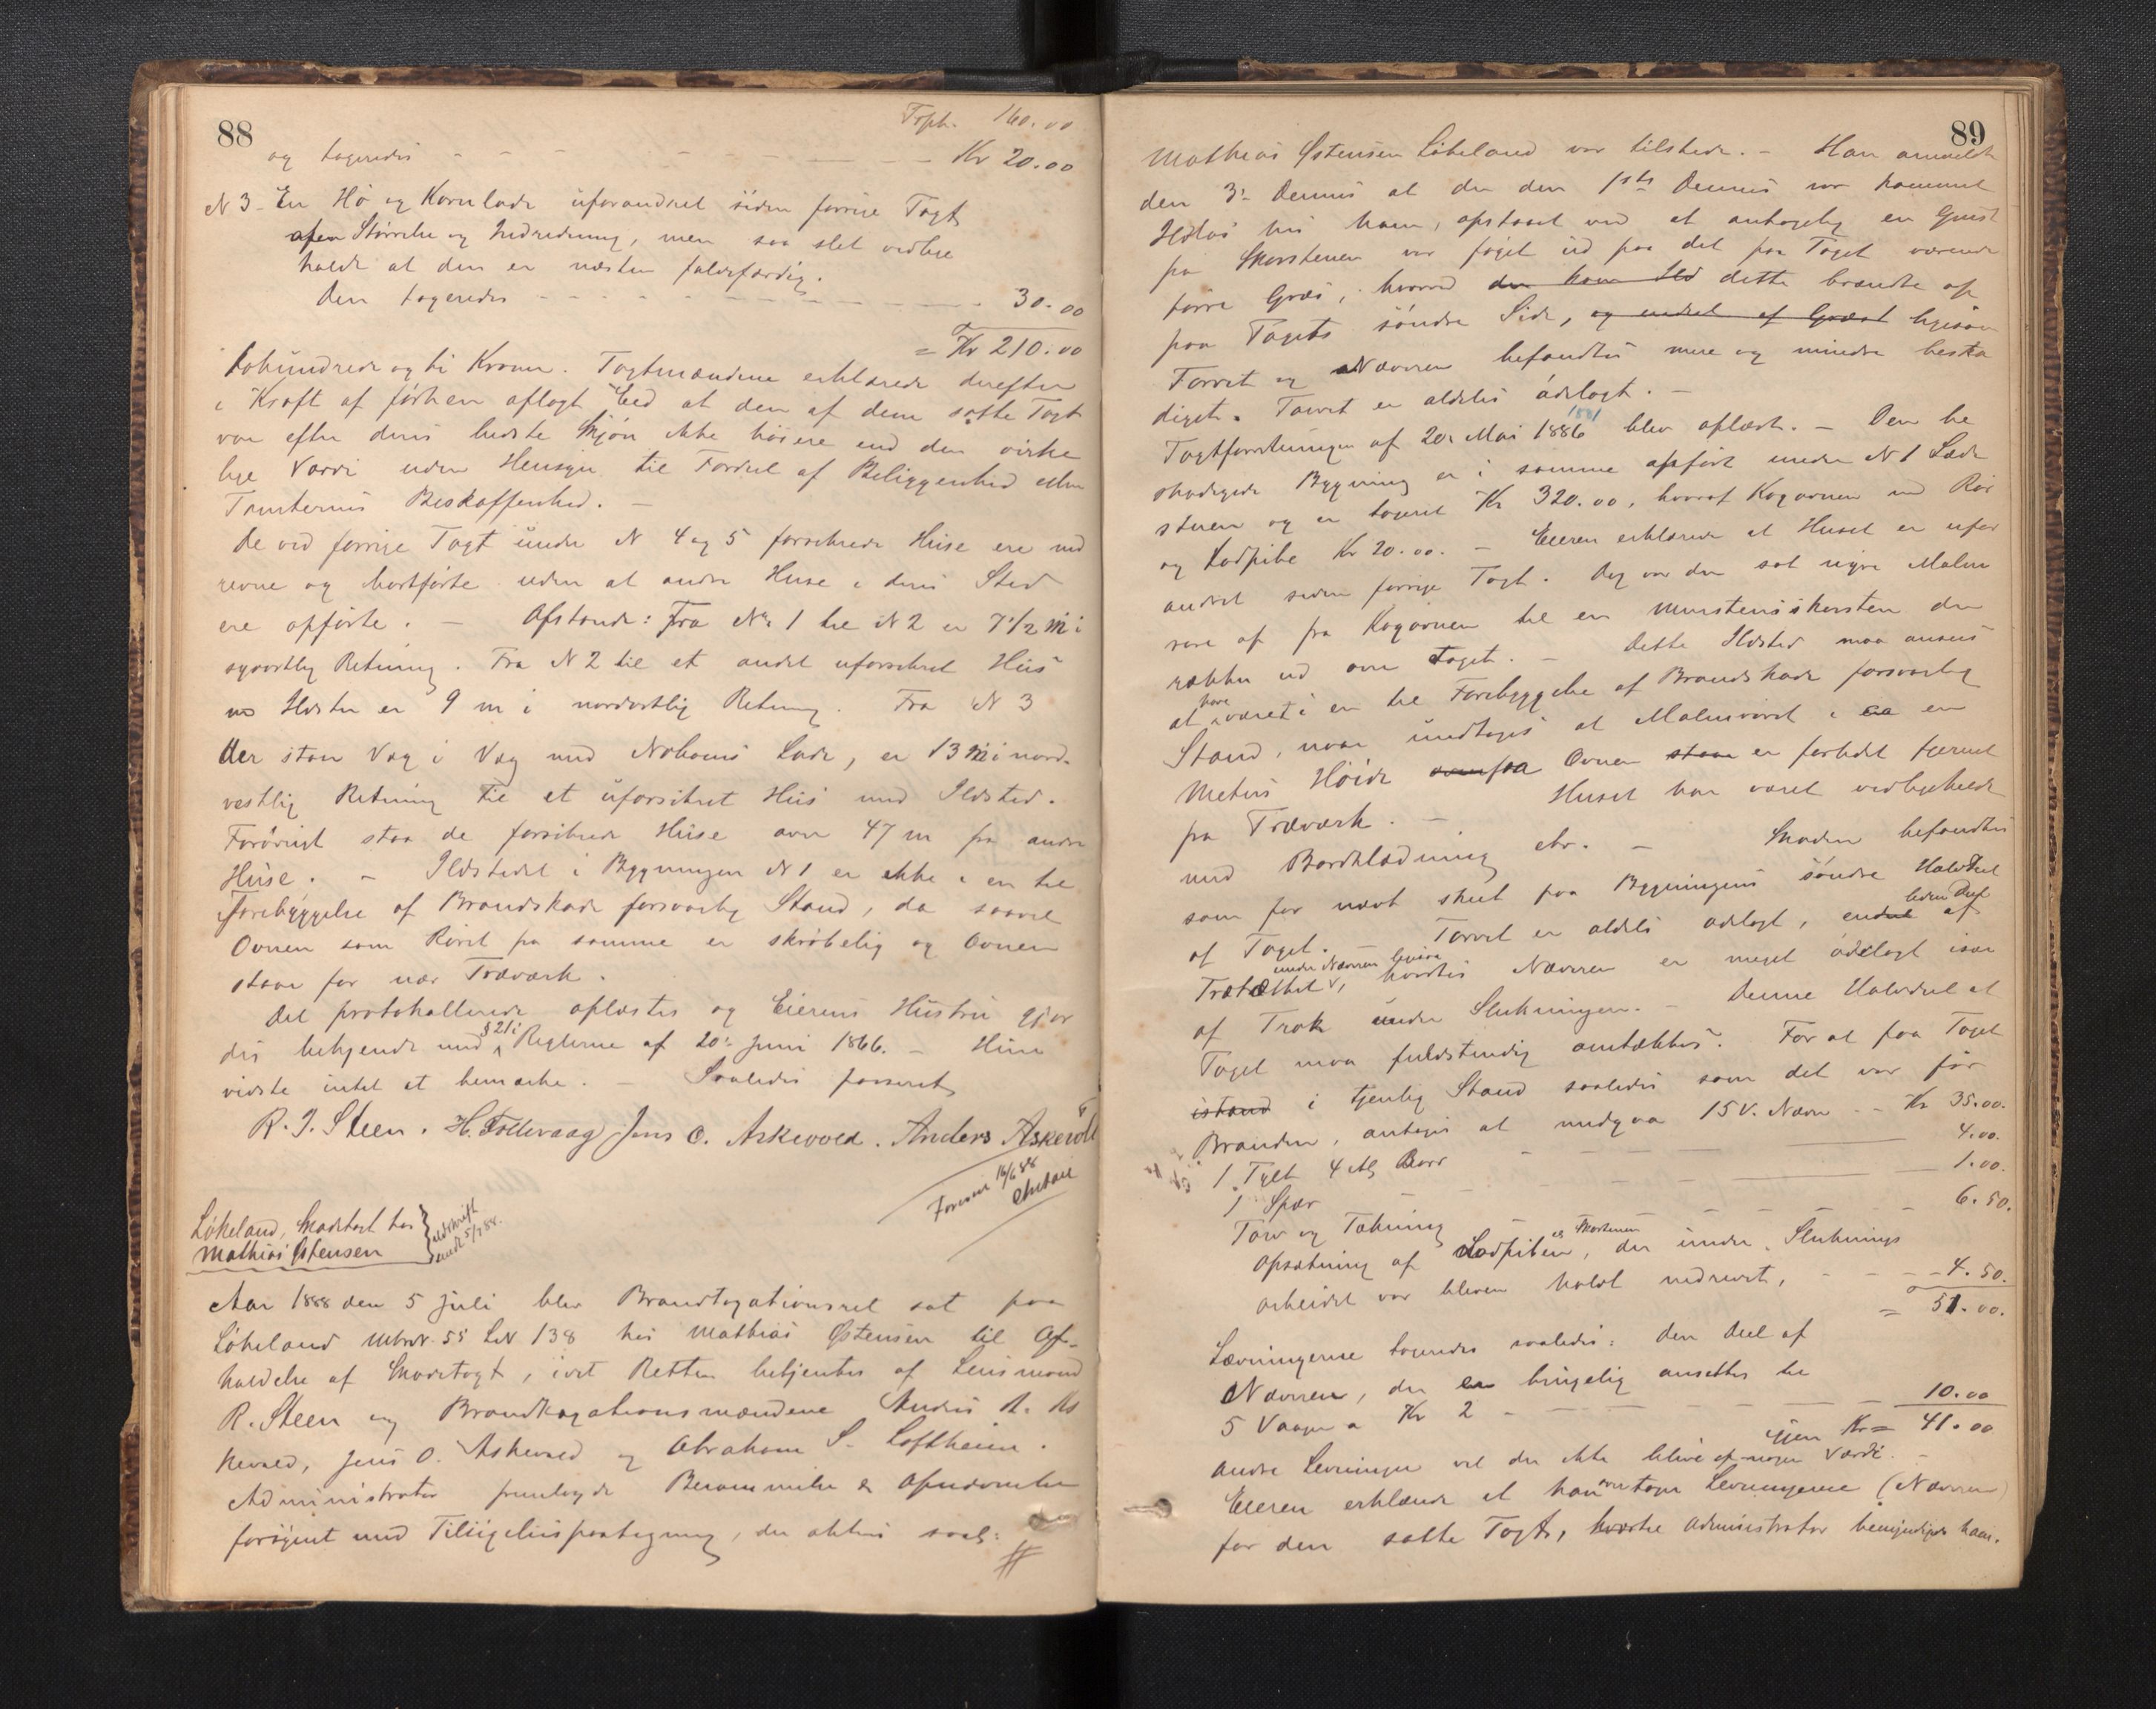 88
Trpt. 160.00
og taxeredes - - - - - - - Kr 20.00
N 3 - En Hø og Kornlade uforandret siden forrige Taxt
af Størrelse og Indredning, men saa slet vedlige
holdt at den er næsten faldefærdig.
Den taxeredes - - - - - - - 30.00
= Kr 210.00
Tohundrede og ti Kroner. Taxtmændene erklærede derefter
i Kraft af forhen aflagt Eed at den af dem satte Taxt
var efter deres bedste Skjøn ikke høiere end den virke
lige Værdi uden Hensyn til Fordel af Beliggenhed eller
Tomternes Beskaffenhed. -
De ved forrige Taxt under N 4 og 5 forsikrede Huse ere ned
revne og bortførte uden at andre Huse i deres Sted
ere opførte. - Afstande: Fra No 1 til N 2 er 7 1/2 m i
sydostlig Retning. Fra N 2 til et andet uforsikret Huus
Ildsted er 9 m i nordostlig Retning. Fra N 3
der staar Væg i Væg med Naboens Lade, er 13 m i nord-
vestlig Retning til et uforsikret Huus med Ildsted.
Forøvrigt staa de forsikrede Huse over 47 m fra andre
Huse. - Ildstedet i Bygningen N 1 er ikke i en til
Forebyggelse af Brandskade forsvarlig Stand, da saavel
Ovnen som Røret fra samme er skrøbelig og Ovnen
staar for nær Træværk.
Det protokollerede oplæstes og Eierens Hustru gjor
des bekjendt med § 21 i Reglerne af 20de Juni 1866. - Hun
vidste intet at bemærke. - Saaledes passeret
R. J. Steen. H. Tollevaag Jens O. Askevold. Anders Askevold
Løkeland, Skadetaxt hos
Mathias Østensen
udskrift
sendt 5/7 88.
Aar 1888 den 5 Juli blev Brandtaxationsret sat paa
Løkeland Mtr.N. 55 L.N 138 hos Mathias Østensen til Af-
holdelse af Skadetaxt, idet Retten betjentes af Lensmand
R. Steen og Brandtaxationsmændene Anders A. As
kevold, Jens O. Askevold og Abraham S. Loftheim.
Administrator fremlagde Berammelse & Opnævnelse
forsynet med Tilsigelsespaategning, der aktes saal:
#
89
Mathias Østensen Løkeland var tilstede. - Han anmeldte
den 3. Dennes at der den 1ste Dennes var kommet
Ildløs hos ham, opstaaet ved at antagelig en Gnist
fra Skorstenen var føget ud paa det paa Taget værende
tørre Græs, hvorved der kom Ild dette brændte op
paa Tagets søndre Side, og endel af Græset ligesom
Torvet og Næveren befandtes mere og mindre beska
diget. Torvet er aldeles ødelagt. -
Taxtforretningen af 20. Mai 1886 1881 blev oplæst. - Den be
skadigede Bygning er i samme opført under N 1 Lade
stuen og er taxeret Kr 320.00, hvoraf Kogovnen med Rør
og Ladpibe Kr 20.00. - Eieren erklærede at Huset er ufor
andret siden forrige Taxt. Dog var der sat nyere Malm
røre af fra Kogovnen til en Murstensskorsten der
rækker ud over Taget. - Dette Ildsted maa ansees
at have været i en til Forebyggelse af Brandskade forsvarlig
Stand, naar undtages at Malmrøret i en
Meters Høide ovenfra Ovnen staar er forlidet fjernet
fra Træværk. - Huset har været vedligeholdt
med Bordklædning etc. - Skaden befandtes
som før nævnt skeet paa Bygningens søndre Halvdeel
af Taget. - Torvet er aldeles ødelagt, endel liden Deel af
Trætækket under Næveren ligesaa, hvortil Næveren er meget ødelagt især
af Træk under Slukningen. - Denne Halvdeel af
Taget maa fuldstændig omtækkes. For at faa Taget
istand i tjenlig Stand saaledes som det var før
Branden, antages at medgaa 15 V. Næver - - Kr 35.00.
1 Tylt 4 Al. Bord - - - - 4.00.
1 Spær - - - - 1.00.
Torv og Tækning - - - - 6.50.
Opsætning af Ladpiben & Skorstenen, der under Sluknings
arbeidet var bleven holdt nedrevet, - - - - 4.50.
= 51.00.
Levningerne taxeredes saaledes: den Deel af
Næveren, der er brugelig ansættes til
5 Vaager a Kr 2 - - - - 10.00
igjen Kr = 41.00
Andre Levninger vil der ikke blive af nogen Værdi. -
Eieren erklærede at han overtager Levningerne (Næveren)
for den satte Taxt, hvortil Administrator bemyndigede ham.